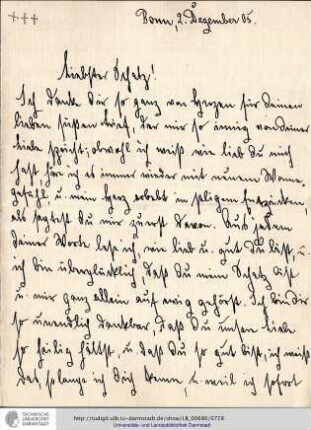 +++
Bonn, 2. Dezember 05.
Liebster Schatz!
Ich danke Dir so ganz von Herzen für Deinen
lieben süßen Brief, der mir so innig von Deiner
Liebe spricht; obwohl ich weiß wie lieb Du mich
hast, höre ich es immer wieder mit neuem Wonne-
gefühl u. mein Herz erbebt in seligem Entzücken,
als sagtest Du mir zuerst davon. Aus jedem
Deiner Worte lese ich, wie lieb u. gut Du bist, u.
ich bin überglücklich, daß Du mein Schatz bist
u. mir ganz allein auf ewig gehörst. Ich bin Dir
so unendlich dankbar, daß Du unsere Liebe
so heilig hältst, u. daß Du so gut bist; ich weiß
das, solange ich Dich kenne, u. weil ich sofort
TECHNISCHE
UNIVERSITÄT
DARMSTADT
http://tudigit.ulb.tu-darmstadt.de/show/LB_00686/0728
Universitäts- und Landesbibliothek Darmstadt